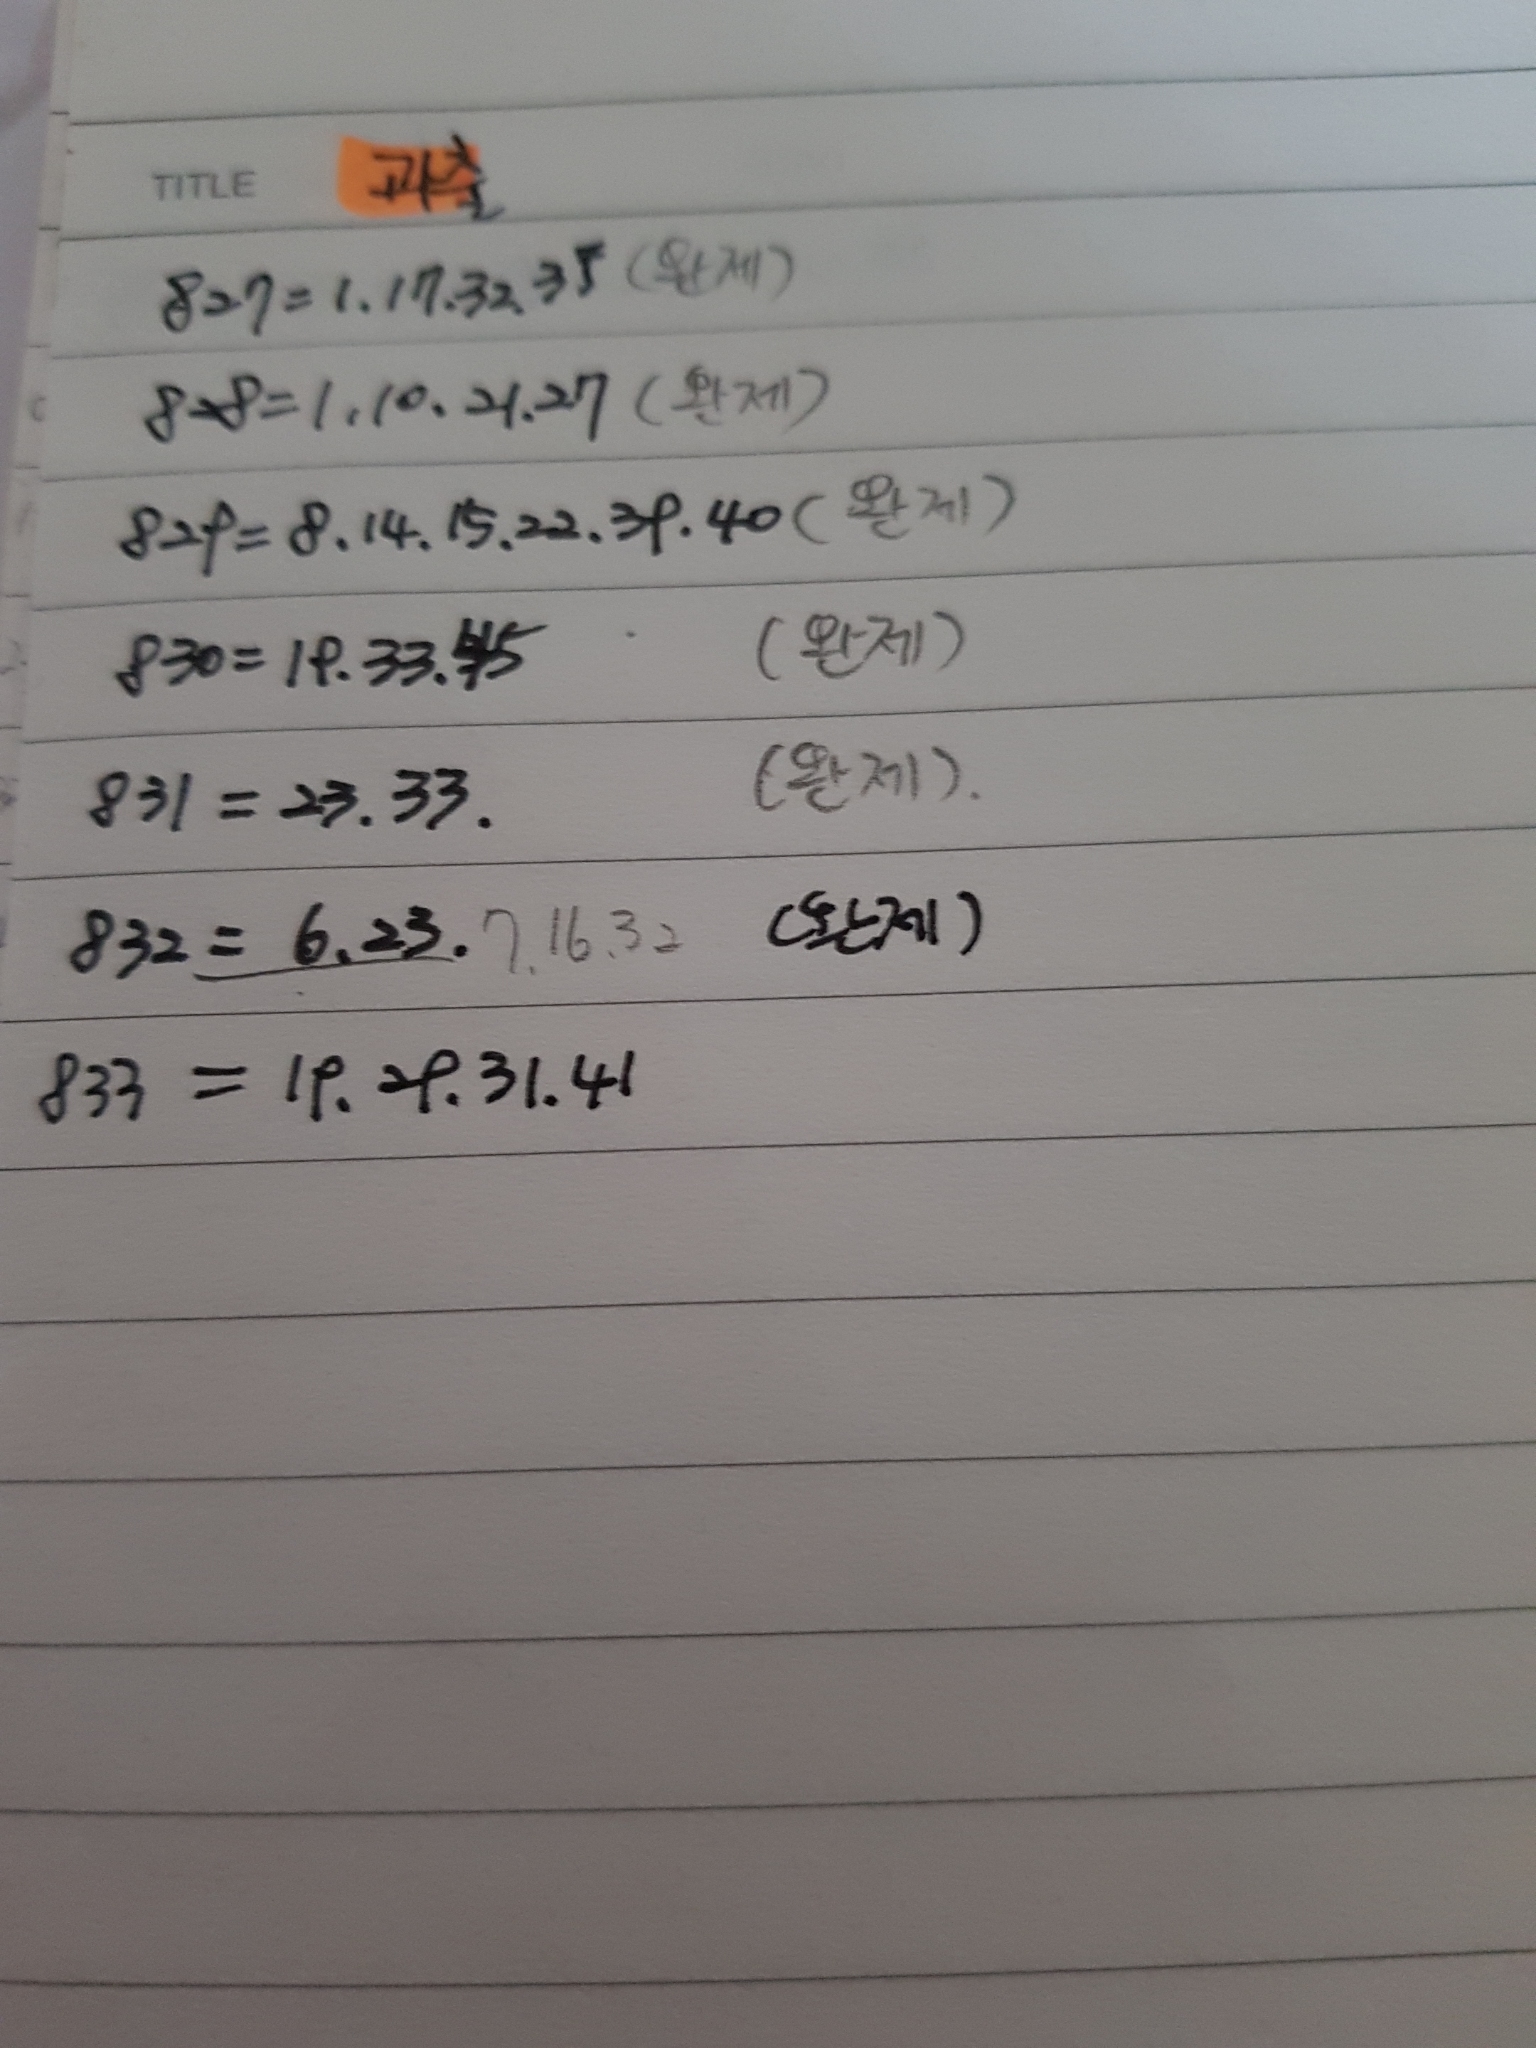 TITLE 과출
827=1.17.32.35 (완제)
828=1.10.21.27 (완제)
829=8.14.15.22.39.40 (완제)
830=19.33.45 (완제)
831=23.33. (완제).
832=6.23.7.16.32 (완제)
833=19.29.31.41